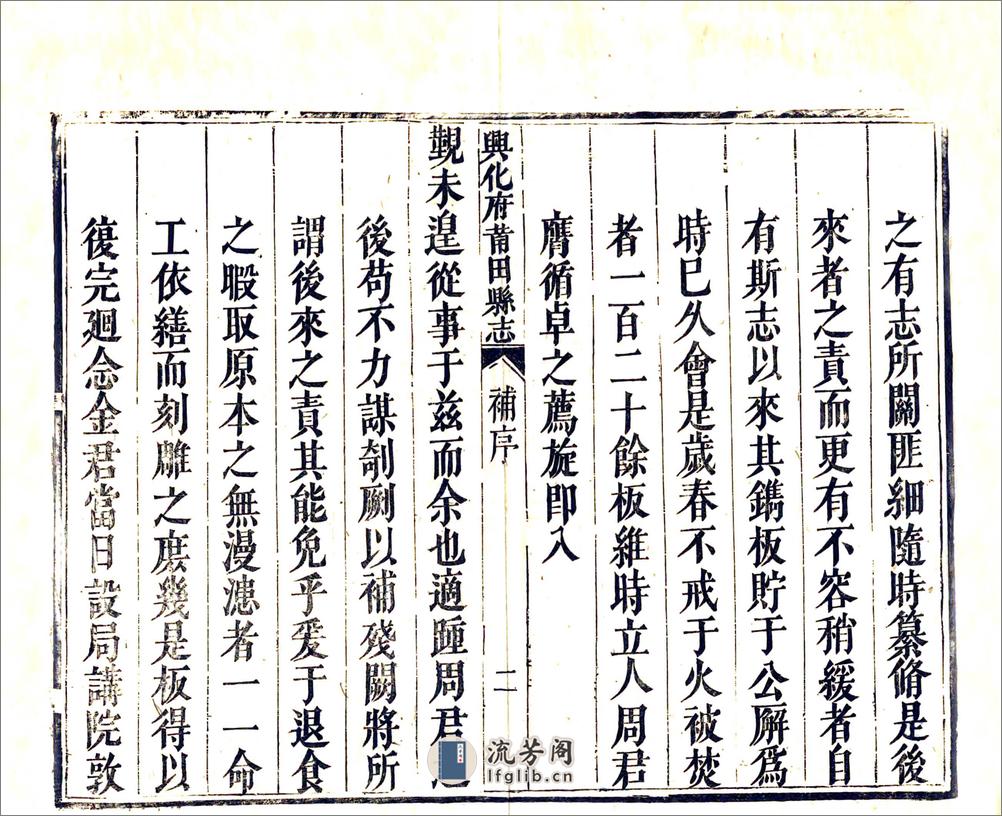 之有志所關匪細隨時纂脩是後
來者之責而更有不容稍緩者自
有斯志以來其鐫板貯于公廨爲
時已久會是歲春不戒于火被焚
者一百二十餘板維時立人周君
膺循卓之薦旋即入
興化府莆田縣志
補序
二
覲未遑從事于兹而余也適踵周君
後苟不力謀剞劂以補殘闕將所
謂後來之責其能免乎爰于退食
之暇取原本之無漫漶者一一命
工依繕而刻雕之庶幾是板得以
復完廻念金君當日設局講院敦
流芳阁
lfglib.cn